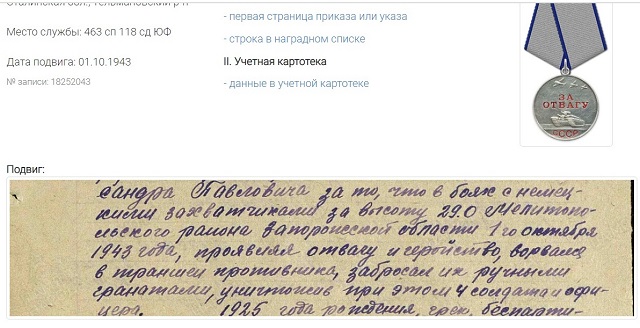 Сталинская обл., Тельмановский р-н
- первая страница приказа или указа
Место службы: 463 сп 118 сд ЮФ
- строка в наградном списке
Дата подвига: 01.10.1943
II. Учетная картотека
№ записи: 18252043
- данные в учетной картотеке
ЗА
ОТВАГУ
СССР
Подвиг:
сандра Павловича за то, что в боях с немец-
кими захватчиками за высоту 29.0 Мелитопо-
льского района Запорожской области 1го октября
1943 года, проявляя отвагу и геройство, ворвался
в траншеи противника, забросал их ручными
гранатами, уничтожив при этом 4 солдата и офи-
цера. 1925 года рождения, грек, беспарти-